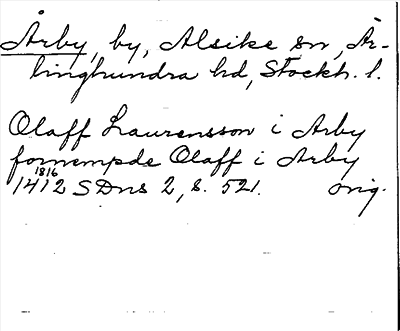 Årby, by, Alsike sn, Är-
linghundra hd, Stockh. l.
Olaff Laurensson i Arby
fornempde Olaff i Arby
18/6
1412 SDns 2, s. 521. orig.